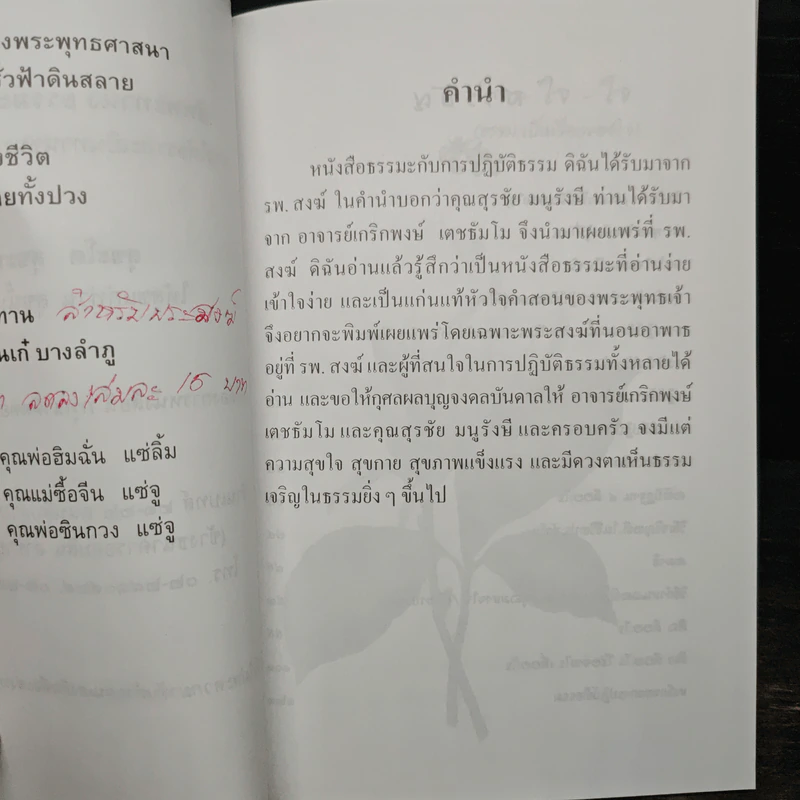 งพระพุทธศาสนา
รัวฟ้าดินสลาย
ชีวิต
ยทั้งปวง
ทาน สำหรับพระสงฆ์
นเก๋ บางลำภู
ละ 15 บาท
คุณพ่อฮิมฉั่น แซ่ลิ้ม
คุณแม่ซื้อจีน แซ่จู
คุณพ่อซินกวง แซ่จู
คำนำ
หนังสือธรรมะกับการปฏิบัติธรรม ดิฉันได้รับมาจาก
รพ. สงฆ์ ในคำนำบอกว่าคุณสุรชัย มนูรังษี ท่านได้รับมา
จาก อาจารย์เกริกพงษ์ เตชธัมโม จึงนำมาเผยแพร่ที่ รพ.
สงฆ์ ดิฉันอ่านแล้วรู้สึกว่าเป็นหนังสือธรรมะที่อ่านง่าย
เข้าใจง่าย และเป็นแก่นแท้หัวใจคำสอนของพระพุทธเจ้า
จึงอยากจะพิมพ์เผยแพร่โดยเฉพาะพระสงฆ์ที่นอนอาพาธ
อยู่ที่ รพ. สงฆ์ และผู้ที่สนใจในการปฏิบัติธรรมทั้งหลายได้
อ่าน และขอให้กุศลผลบุญจงดลบันดาลให้ อาจารย์เกริกพงษ์
เตชธัมโม และคุณสุรชัย มนูรังษี และครอบครัว จงมีแต่
ความสุขใจ สุขกาย สุขภาพแข็งแรง และมีดวงตาเห็นธรรม
เจริญในธรรมยิ่ง ๆ ขึ้นไป